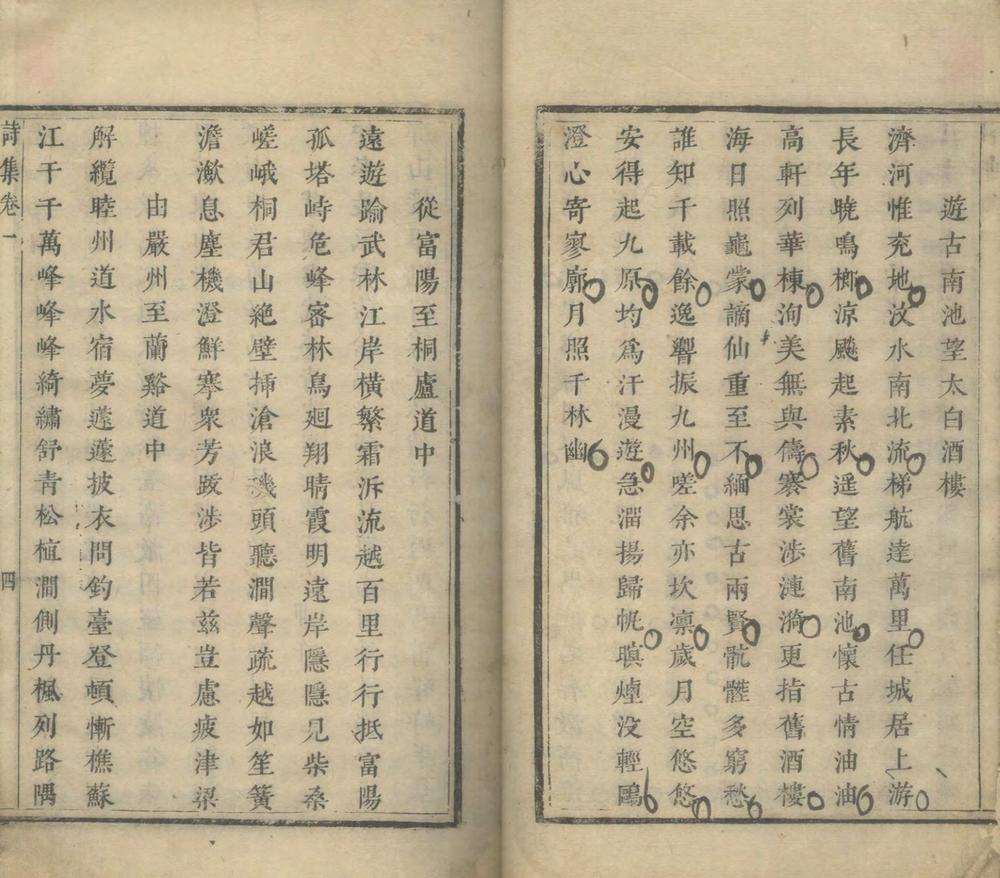 遊古南池望太白酒樓
濟河惟兖地汶水南北流梯航達萬里任城居上游
長年曉鳴榔凉飈起素秋遥望舊南池懷古情油油
高軒列華棟洵美無與儔褰裳涉漣漪更指舊酒樓
海日照龜蒙謫仙重至不緬思古兩賢骯髒多窮愁
誰知千載餘逸響振九州嗟余亦坎凛歲月空悠悠
安得起九原均為汗漫遊急溜揚歸帆瞑煙没輕鷗
澄心寄寥廓月照千林幽
從富陽至桐廬道中
遠遊踰武林江岸横繁霜泝流越百里行行抵富陽
孤塔峙危峰密林鳥廻翔晴霞明遠岸隱隱見柴桑
嵯峨桐君山絶壁揷滄浪磯頭聽澗聲疏越如笙簧
澹瀫息塵機澄鮮搴衆芳跋涉皆若兹豈慮疲津梁
由嚴州至蘭谿道中
解纜睦州道水宿夢蘧蘧披衣問釣臺登頓慚樵蘇
江干千萬峰峰峰綺繡舒青松植澗側丹楓列路隅
詩集卷一
四